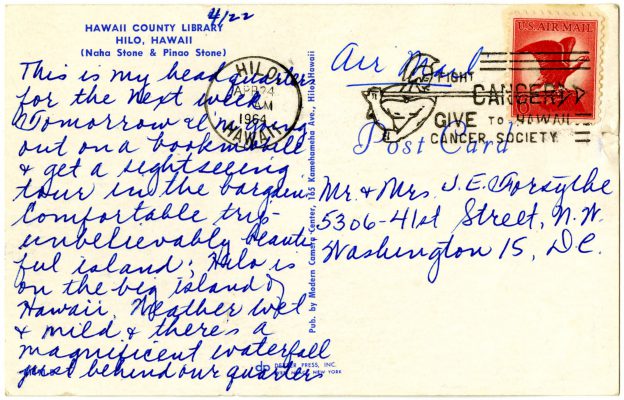 4/22
HAWAII COUNTY LIBRARY
HILO, HAWAII
(Naha Stone & Pinao Stone)
This is my headquarters
for the next week
Tomorrow I'm going
out on a bookmobile
& get a sightseeing
tour in the bargain.
Comfortable trip-
unbelievably beauti-
ful island; Hilo is
on the big island of
Hawaii. Weather wet
& mild & there's a
magnificent waterfall
just behind our quarters
Pub. by Modern Camera Center, 165 Kamehameha Ave., Hilo, Hawaii
dp DEXTER PRESS, INC.
WEST NYACK, NEW YORK
HILO
APR 24
AM
1964
HAWAII
Air Mail
FIGHT
CANCER
GIVE TO HAWAII
CANCER SOCIETY
U.S. AIR MAIL
6¢
Post Card
Mr. & Mrs. J. E. Forsythe
5306-41st Street, N.W.
Washington 15, D.C.